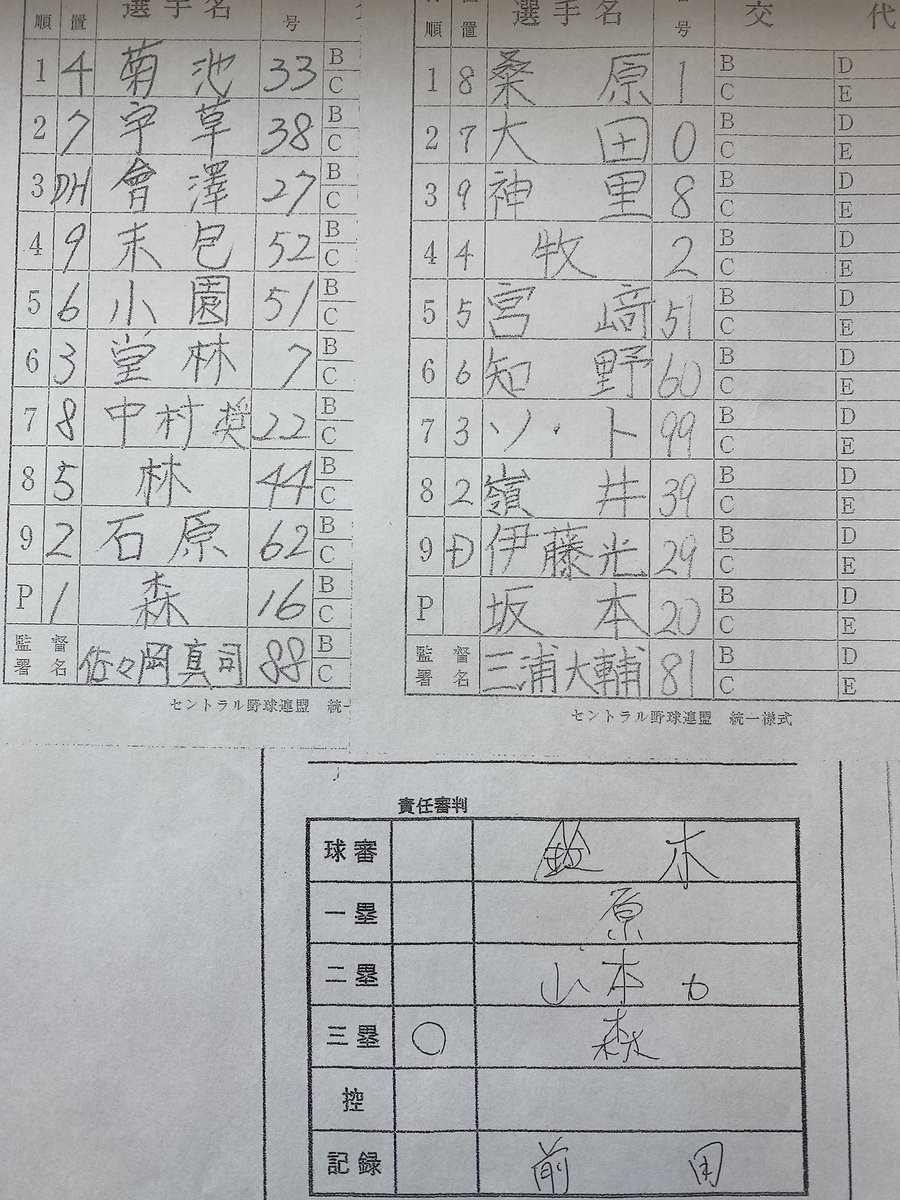 順 置 選手名 号
1 4 菊池 33 B C
2 7 宇草 38 B C
3 DH 會澤 27 B C
4 9 末包 52 B C
5 6 小園 51 B C
6 3 堂林 7 B C
7 8 中村奨 22 B C
8 5 林 44 B C
9 2 石原 62 B C
P 1 森 16 B C
監督署名 佐々岡真司 88 B C
セントラル野球連盟 統一
順 置 選手名 号 交代
1 8 桑原 1 B C D E
2 7 大田 0 B C D E
3 9 神里 8 B C D E
4 4 牧 2 B C D E
5 5 宮﨑 51 B C D E
6 6 知野 60 B C D E
7 3 ソ・ト 99 B C D E
8 2 嶺井 39 B C D E
9 D 伊藤光 29 B C D E
P 坂本 20 B C D E
監督署名 三浦大輔 81 B C D E
セントラル野球連盟 統一様式
責任審判
球審 鈴木
一塁 原
二塁 山本力
三塁 ○ 森
控
記録 前田